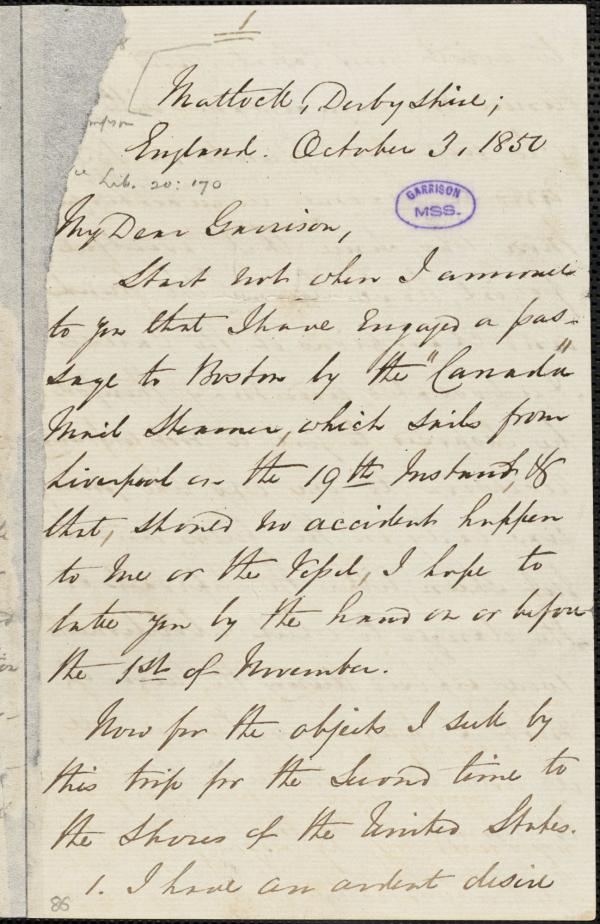 1
Matlock, Derbyshire;
England. October 3, 1850
Lib. 20: 170
GARRISON
MSS.
My Dear Garrison,
Start not when I announce
to you that I have engaged a pas-
sage to Boston by the "Canada"
Mail Steamer, which sails from
Liverpool on the 19th Instant, &
that, should no accident happen
to me or the Vessel, I hope to
take you by the hand on or before
the 1st of November.
Now for the objects I seek by
this trip for the second time to
the shores of the United States.
1. I have an ardent desire
86